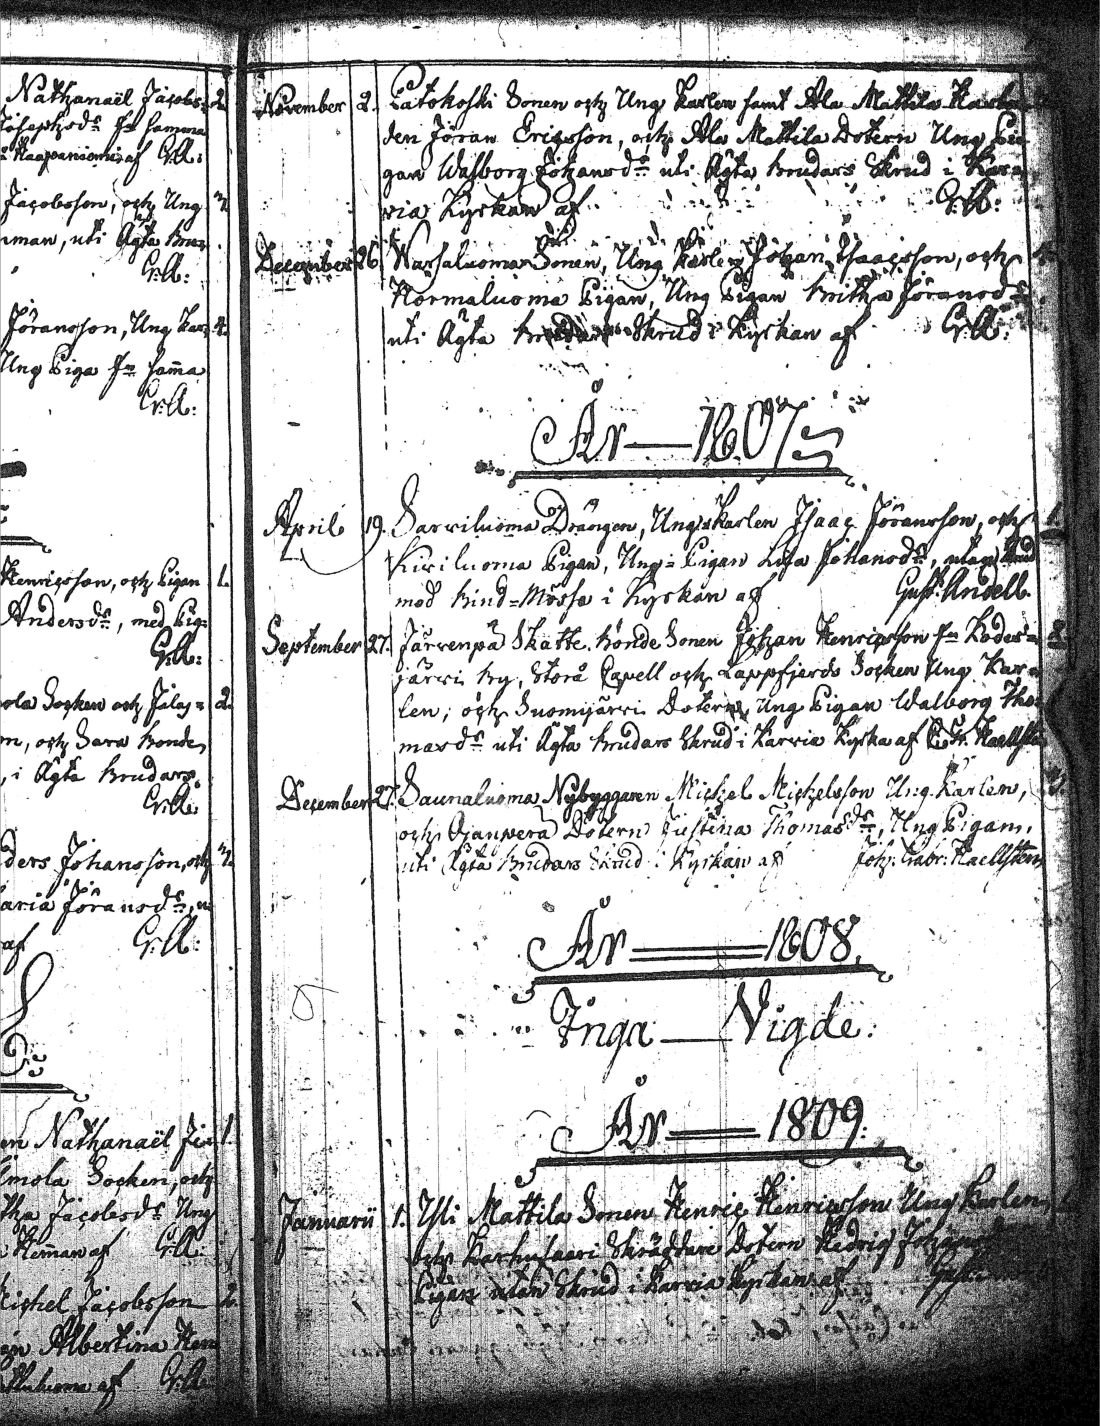 Nathanaël Jacobs= 2.
Josephsdr. fr. samma
Kaapaniemi af G:A:
Jacobsson, och Ung 3.
nman, uti Ägta Bru=
G:A:
Jöransson, Ung Kar= 4.
Ung Piga fr. samma
G:A:
Henricsson, och Pigan 1.
Andersdr., med Pig=
G:A:
ola Socken och Jalas= 2.
n, och Sara Bonde,
, i Ägta Brudars
G:A:
ders Johansson, och 3.
aria Jöransdr., u
af G:A:
en Nathanaël Jac 1.
lmola Socken, och
tha Jacobsdr. Ung
Heman af G:A:
Michel Jacobsson 2.
Albertina Hen
luoma af G:A:
November 2. Låtokoski Sonen och Ung Karlen samt Ala Mattila
den Jöran Ericsson, och Ala Mattila Dotern Ung Pi=
gan Walborg Johansdr. uti Ägta Brudars Skrud i Kar=
via Kyrkan af G:A:
December 26. Warsaluoma Sonen, Ung Karlen Johan Isaacsson, och 4.
Kormaluoma Pigan, Ung Pigan Britha Jöransdr.
uti Ägta Brudars Skrud i Kyrkan af G:A:
År — 1807
April 19. Sarviluoma Drängen, Ung Karlen Isaac Jöransson, och 1.
Kiviluoma Pigan, Ung=Pigan Lisa Johansdr., utan Skrud
med Bind=Mössa i Kyrkan af Gust: Andell.
September 27. Järvenpä Skatte Bonde Sonen Johan Henricsson fr. Kodes= 2.
järvi By, Storå Capell och Lappfjerds Socken Ung Kar=
len; och Suomijärvi Dotern, Ung Pigan Walborg Tho=
masdr. uti Ägta Brudars Skrud i Karvia Kyrka af
December 27. Saunaluoma Nybyggaren Michel Michelsson Ung Karlen, 3.
och Ojanperä Dotern Justina Thomasdr., Ung Pigan,
uti Ägta Brudars Skrud i Kyrkan af Joh: Gabr: Kaellsten
År — 1808.
Inga — Vigde:
År — 1809.
Januarii 1. Yli Mattila Sonen Henric Henricsson Ung Karlen,
och Karhulaari Skräddare Dotern Hedvig
Pigan utan Skrud i Karvia Kyrkan af Gust: